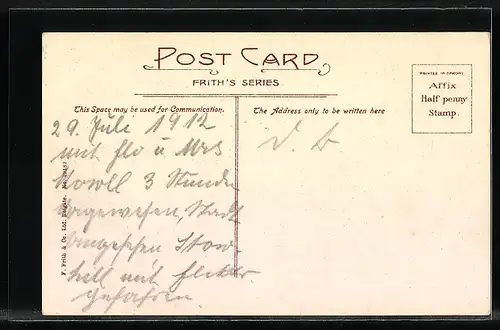 POST CARD
FRITH'S SERIES.
This Space may be used for Communication.
The Address only to be written here
PRINTED IN SAXONY
Affix
Half penny
Stamp.
29. Juli 1912
mit flo u Mrs
3 Stunden
dagewesen, Stadt
angesehen Stow-
hill mit
gefahren.
F. Frith & Co. Ltd, Reigate. No.